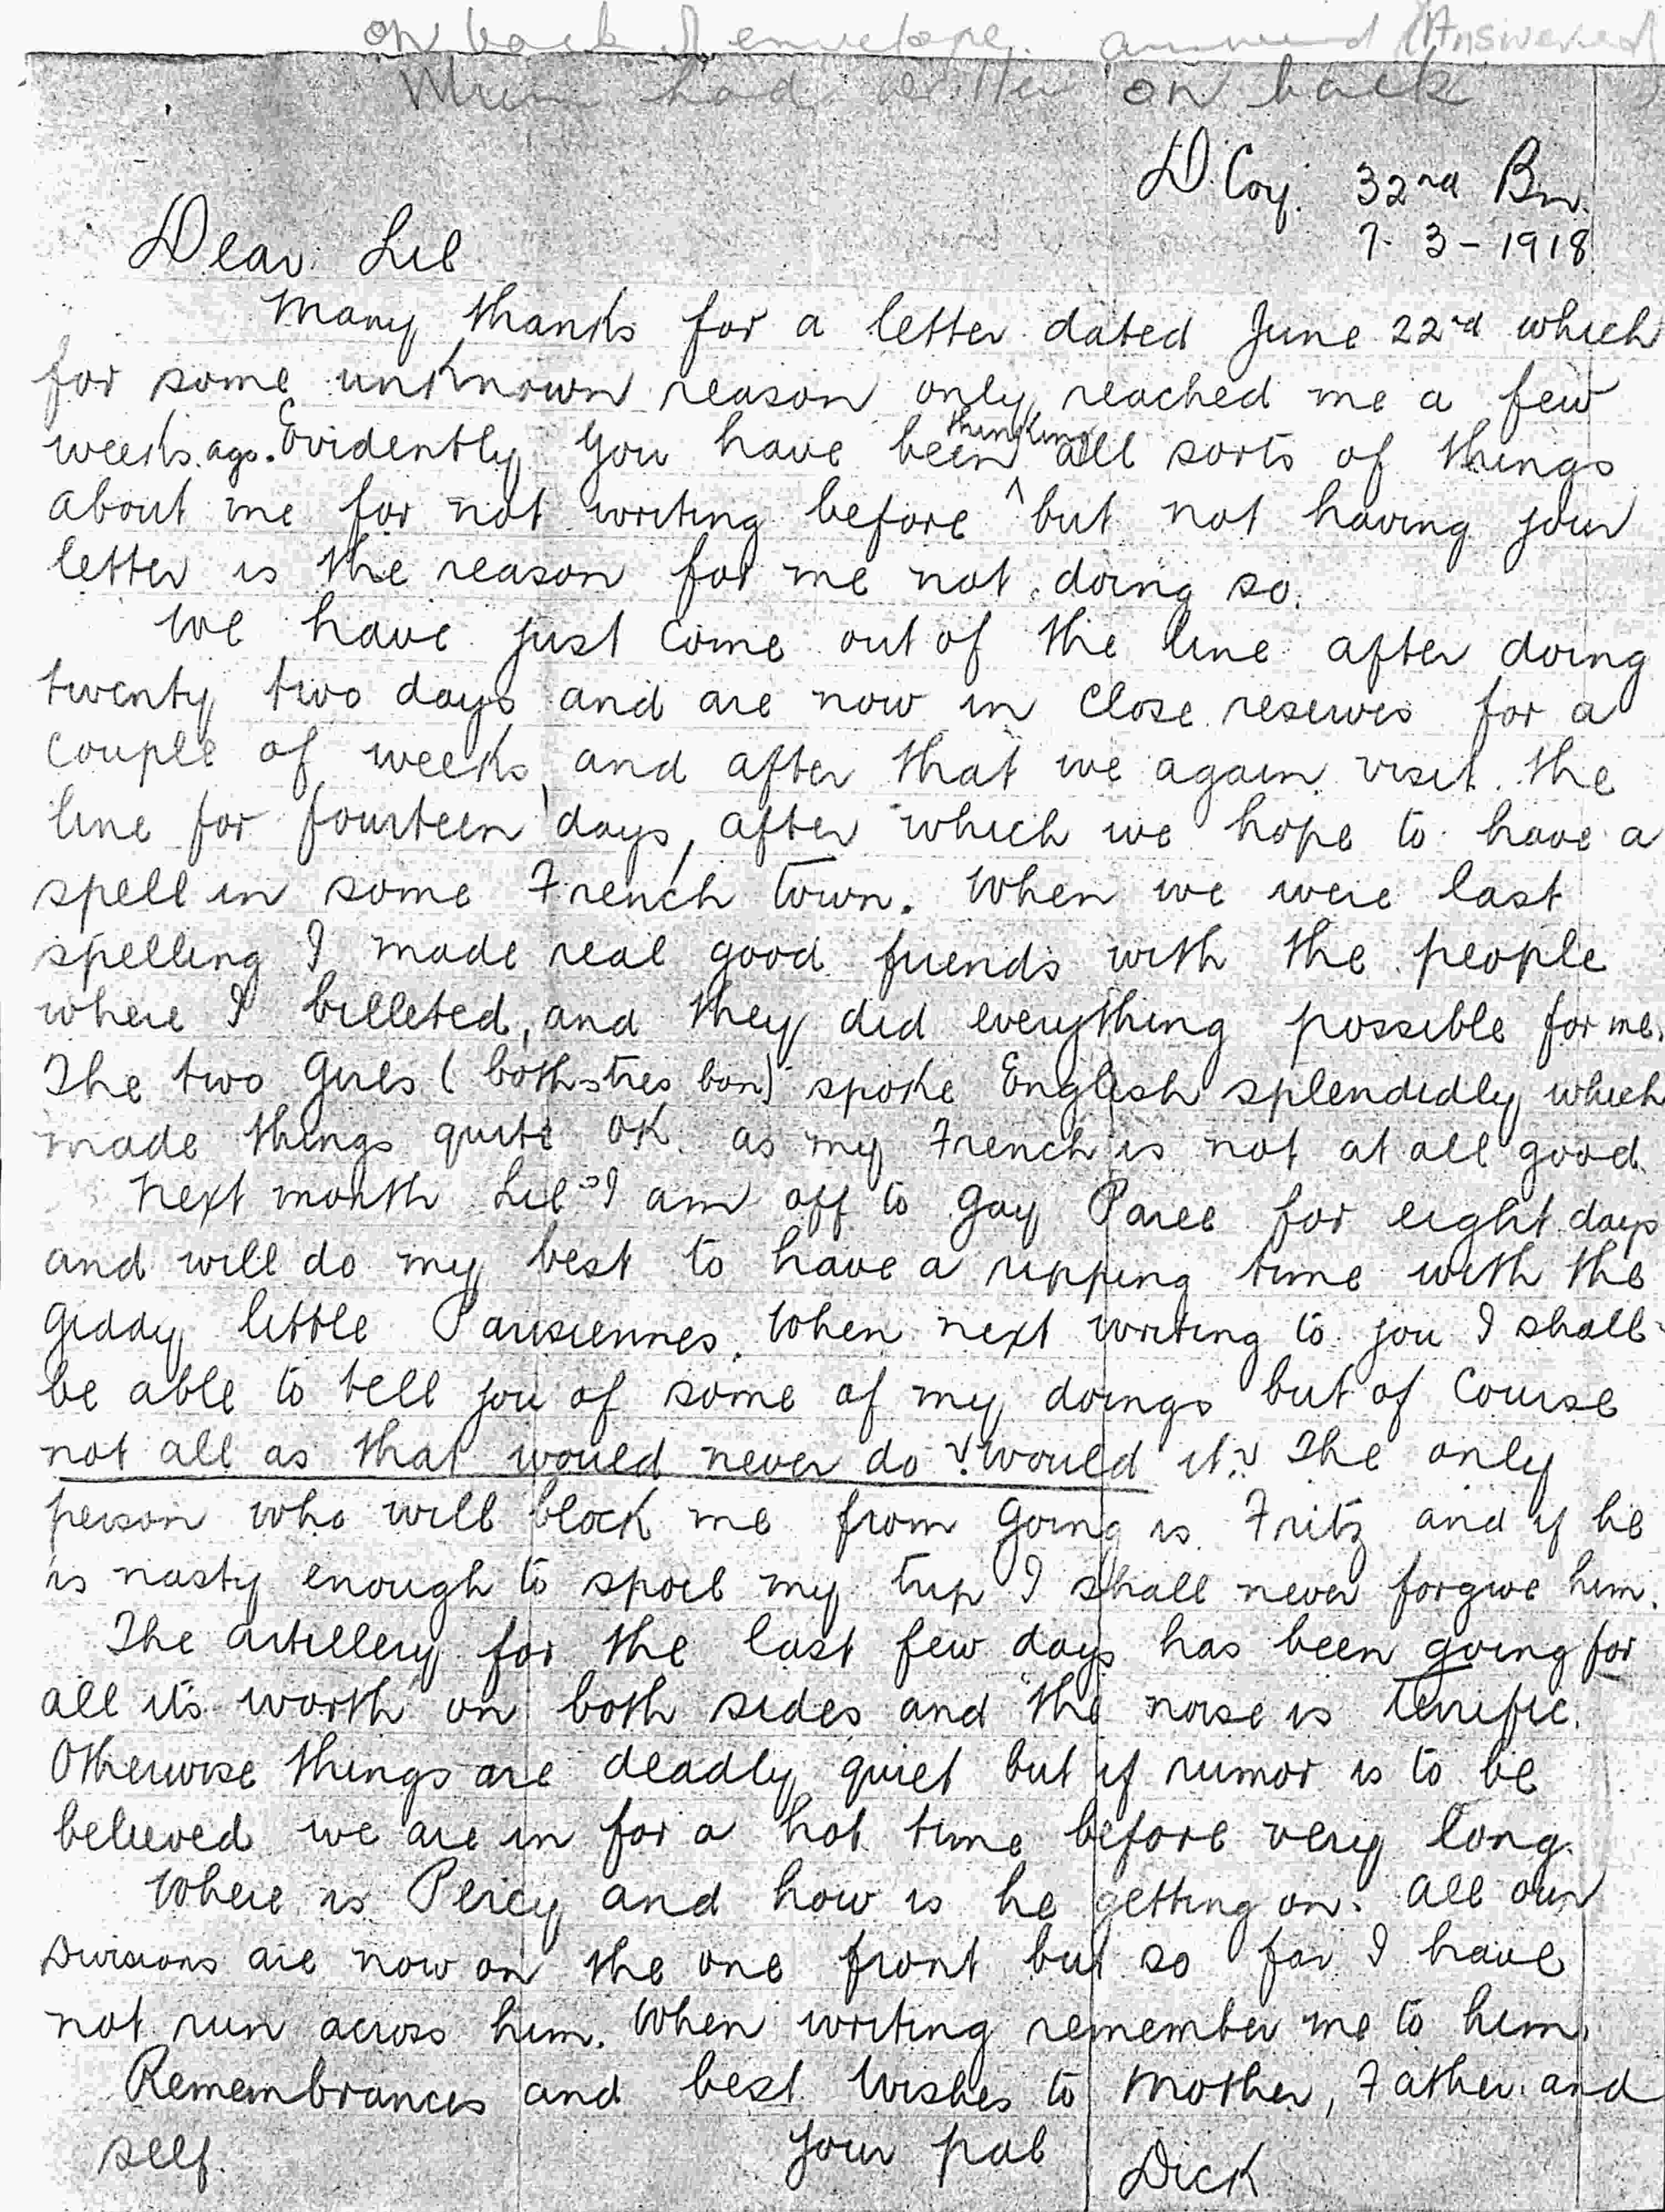 on back of envelope. answered (Answered)
Mum had written on back
D. Coy. 32nd Bn.
7. 3 - 1918
Dear Lil
Many thanks for a letter dated June 22nd which
for some unknown reason only reached me a few
weeks ago. Evidently you have been thinking all sorts of things
about me for not writing before ^ but not having your
letter is the reason for me not doing so.
We have just come out of the line after doing
twenty two days and are now in close reserves for a
couple of weeks, and after that we again visit the
line for fourteen days, after which we hope to have a
spell in some French town. When we were last
spelling I made real good friends with the people
where I billeted, and they did everything possible for me.
The two girls (both tres bon) spoke English splendidly which
made things quite OK. as my French is not at all good.
Next month Lil I am off to gay Paree for eight days
and will do my best to have a ripping time with the
giddy little Parisiennes. When next writing to you I shall
be able to tell you of some of my doings but of course
not all as that would never do would it? The only
person who will block me from going is Fritz and if he
is nasty enough to spoil my trip I shall never forgive him.
The artillery for the last few days has been going for
all it's worth on both sides and the noise is terrific.
Otherwise things are deadly quiet but if rumor is to be
believed we are in for a hot time before very long.
Where is Percy and how is he getting on. All our
Divisions are now on the one front but so far I have
not run across him. When writing remember me to him.
Remembrances and best wishes to Mother, Father and
self.
Your pal Dick